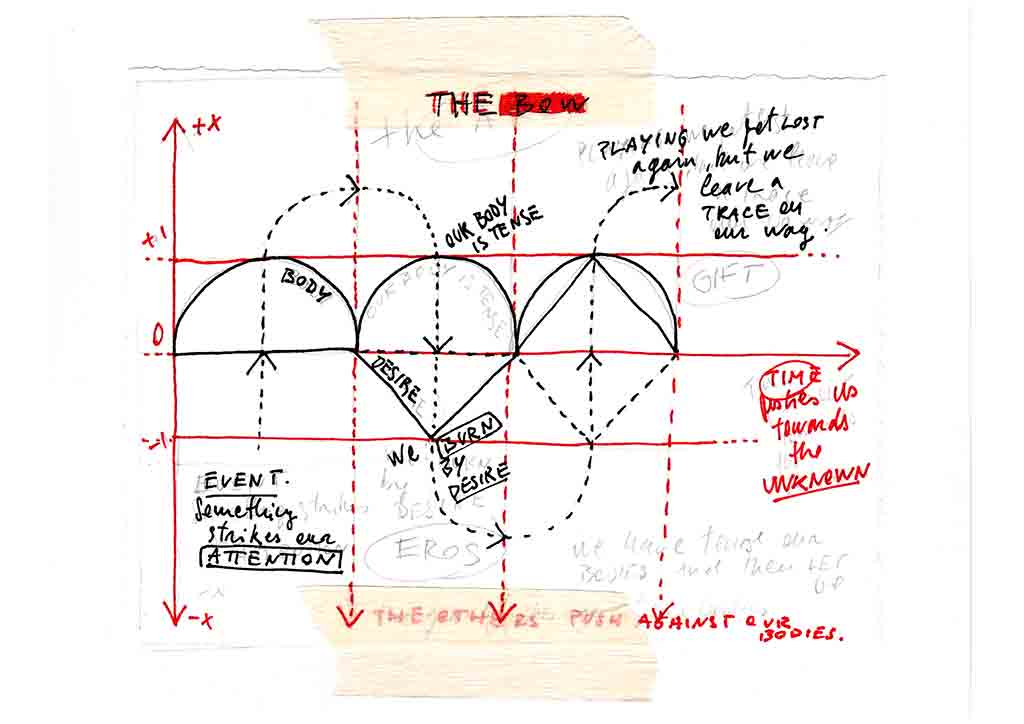 THE BOW
the
+X
PLAYING we get LOST
again, but we
leave a
TRACE on
our way.
+1
OUR BODY
IS TENSE
BODY
OUR BODY IS TENSE
GIFT
0
DESIRE
TIME
pushes us
towards
the
UNKNOWN
-1
We BURN
BY
DESIRE
EVENT.
Something
strikes our
ATTENTION
EROS
we have tense our
BODIES and then LET
GO
-X
THE OTHERS PUSH AGAINST OUR
BODIES.